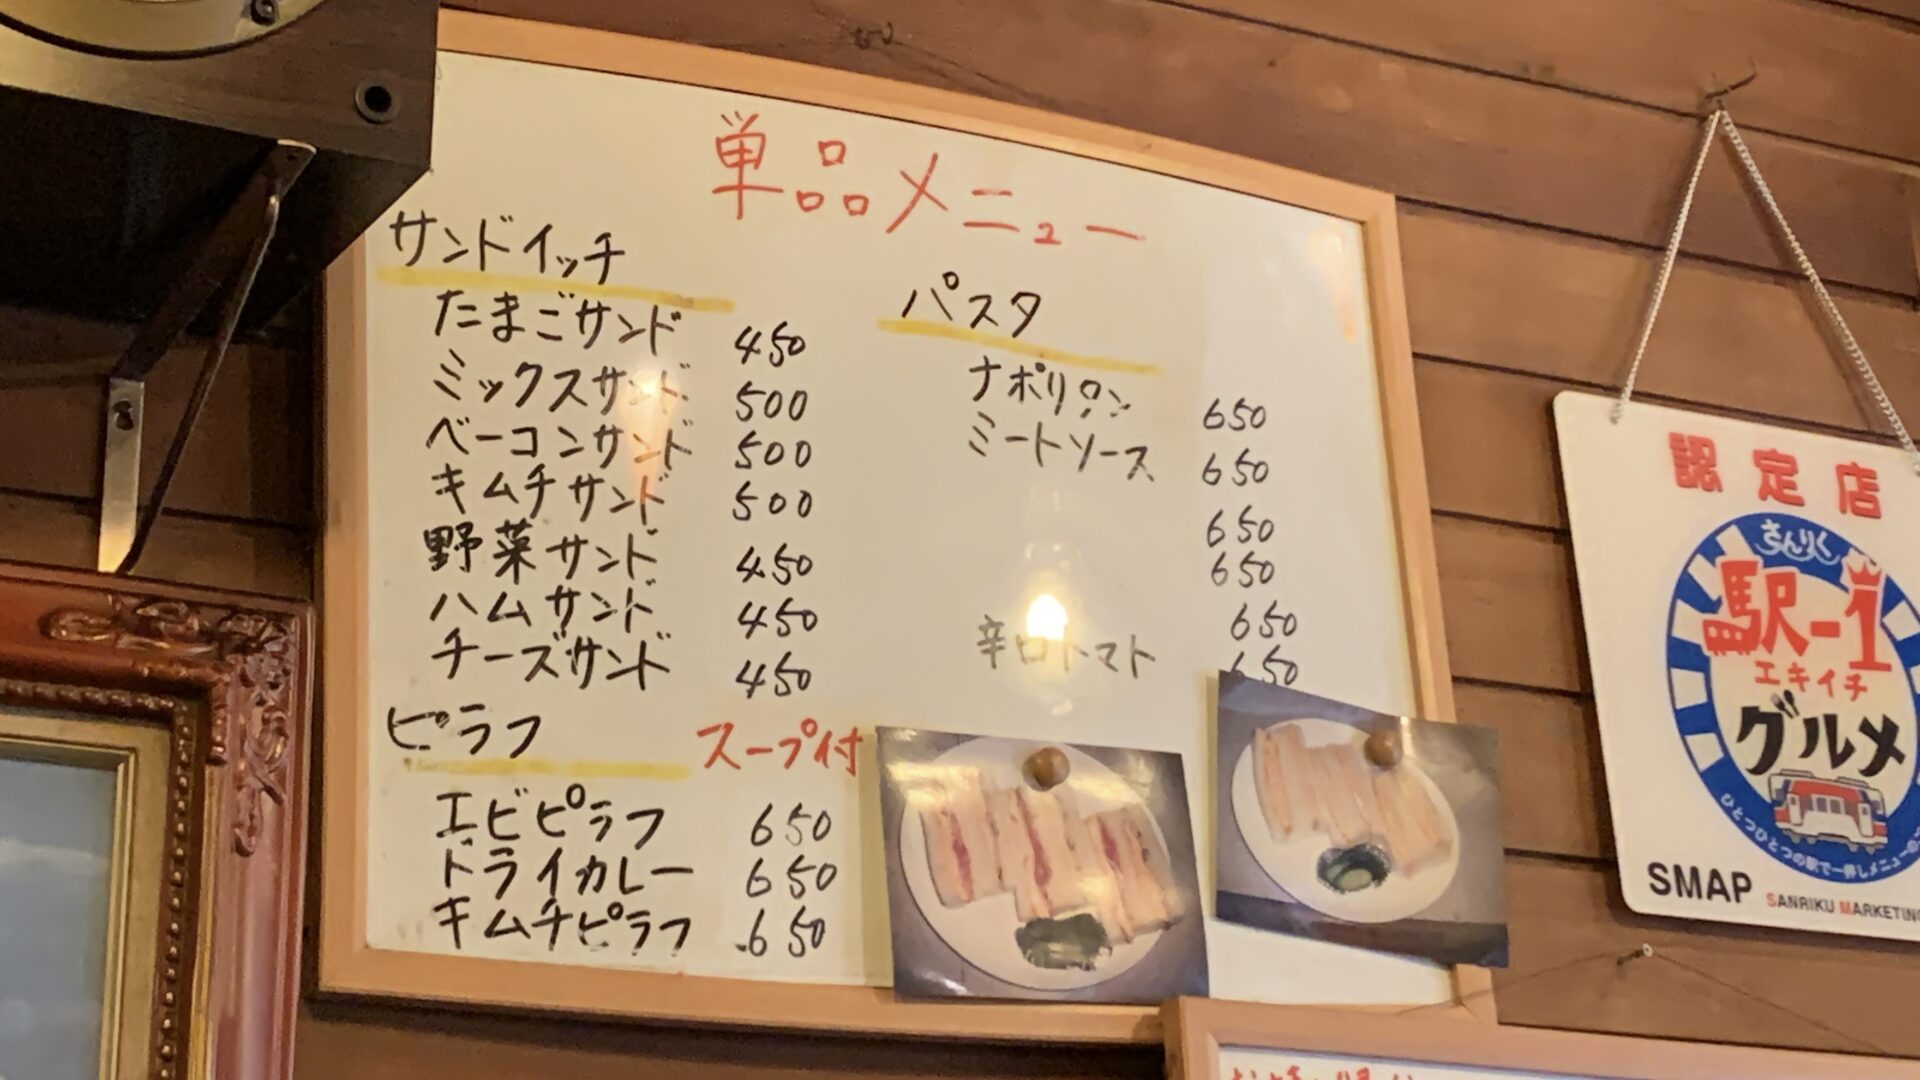 単品メニュー
サンドイッチ
たまごサンド 450
ミックスサンド 500
ベーコンサンド 500
キムチサンド 500
野菜サンド 450
ハムサンド 450
チーズサンド 450
ピラフ スープ付
エビピラフ 650
ドライカレー 650
キムチピラフ 650
パスタ
ナポリタン 650
ミートソース 650
650
650
650
辛口トマト 650
認定店
さんりく
駅-1
エキイチ
グルメ
ひとつひとつの駅で一押しメニューの
SMAP SANRIKU MARKETING